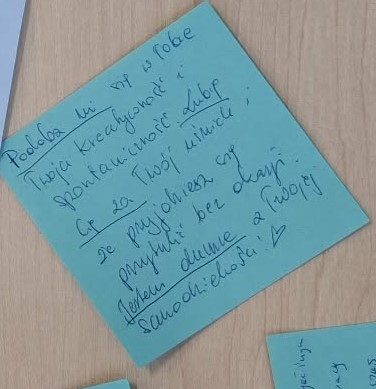 Podoba mi się w Tobie
Twoja kreatywność i
spontaniczność. Lubię
Cię za Twój uśmiech i
że przyjdziesz się
przytulić bez okazji.
Jestem dumna z Twojej
samodzielności!